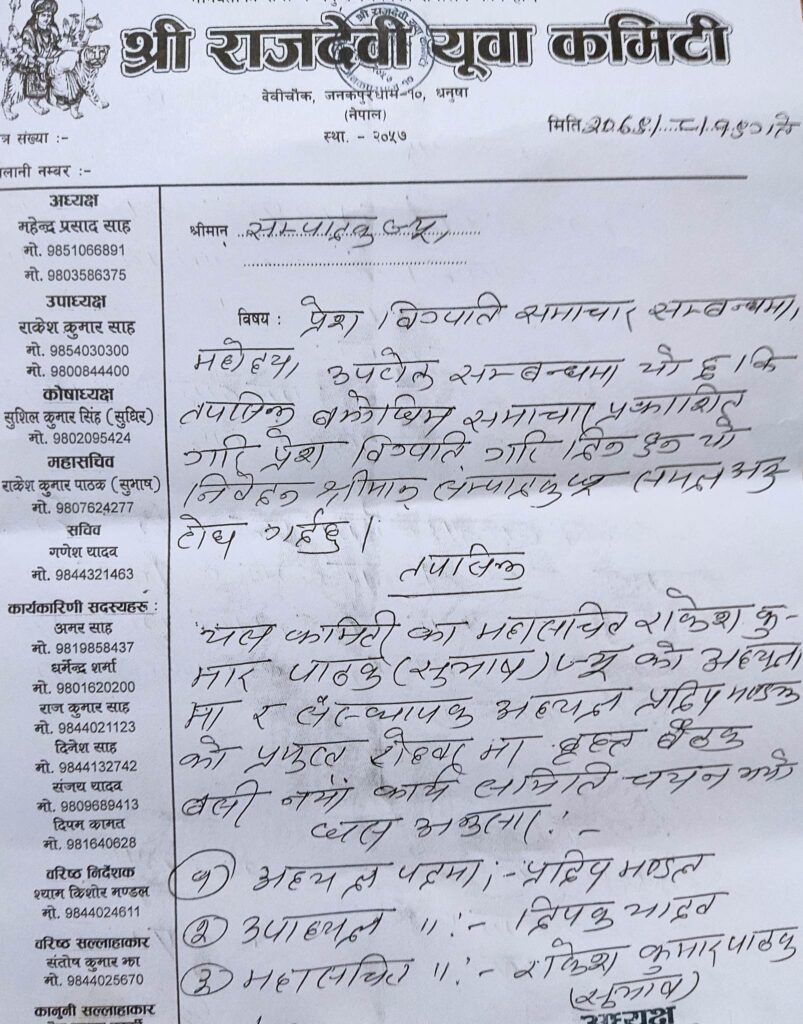 श्री राजदेवी यूवा कमिटी
देवीचौक, जनकपुरधाम-१०, धनुषा
(नेपाल)
स्था. - २०५७
मिति
त्र संख्या :-
लानी नम्बर :-
अध्यक्ष
महेन्द्र प्रसाद साह
मो. 9851066891
मो. 9803586375
उपाध्यक्ष
राकेश कुमार साह
मो. 9854030300
मो. 9800844400
कोषाध्यक्ष
सुशिल कुमार सिंह (सुधिर)
मो. 9802095424
महासचिव
राकेश कुमार पाठक (सुभाष)
मो. 9807624277
सचिव
गणेश यादव
मो. 9844321463
कार्यकारिणी सदस्यहरु :
अमर साह
मो. 9819858437
धर्मेन्द्र शर्मा
मो. 9801620200
राज कुमार साह
मो. 9844021123
दिनेश साह
मो. 9844132742
संजय यादव
मो. 9809689413
दिपम कामत
मो. 981640628
वरिष्ठ निर्देशक
श्याम किशोर मण्डल
मो. 9844024611
वरिष्ठ सल्लाहाकार
संतोष कुमार झा
मो. 9844025670
कानूनी सल्लाहाकार
श्रीमान् सम्पादक ज्यू,
विषय : प्रेश विग्पाति समाचार सम्बन्धमा,
महोदय, उपरोक्त सम्बन्धमा यो छ कि
तपसिल बमोजिम समाचार प्रकाशित
गरि प्रेश विग्पाति गरि दिनु हुन यो
निवेदन श्रीमान् सम्पादक ज्यू समक्ष अनु
रोध गर्दछु ।
तपसिल
यस कमिटी का महासचिव राकेश कु-
मार पाठक (सुभाष) ज्यू को अध्यक्षता
मा र संस्थापक अध्यक्ष प्रदिप मण्डल
को प्रमुख रोहवर मा बृहत बैठक
बसी नयाँ कार्य समिति चयन भयो
अनुसार :-
१ अध्यक्ष पदमा :- प्रदिप मण्डल
२ उपाध्यक्ष " :- दिपक यादव
३ महासचिव " :- राकेश कुमार पाठक
(सुभाष)
अध्यक्ष